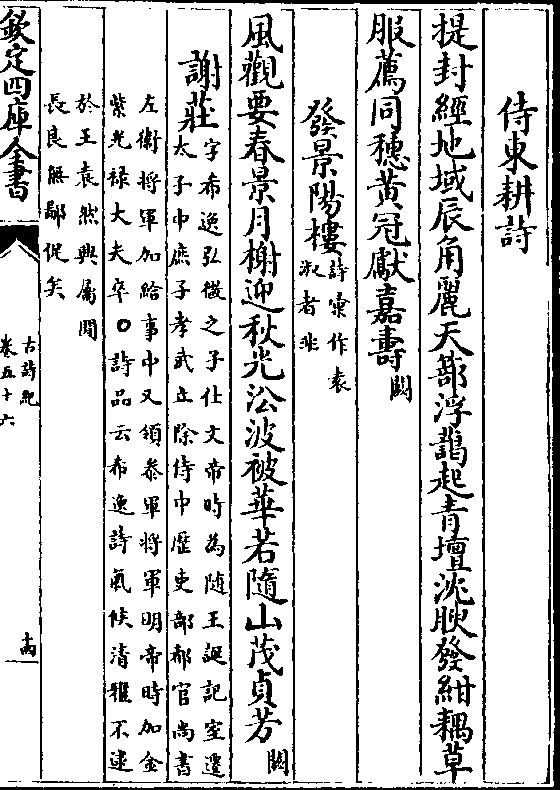 侍東耕詩
提封經地域辰角麗天部浮藹起青壇沈腴發紺耦草
服薦同穗黃冠獻嘉壽闕
發景陽樓詩彙作袁
淑者非
風觀要春景月榭迎秋光沿波被華若隨山茂貞芳闕
謝莊字希逸弘微之子仕文帝時為隨王誕記室遷
太子中庶子孝武立除侍中歷吏部都官尚書
左衛將軍加給事中又領參軍將軍明帝時加金
紫光祿大夫卒○詩品云希逸詩氣候清雅不逮
於王袁然興屬閒
長良無鄙促矣
欽定四庫全書
古詩紀
卷五十六
十四